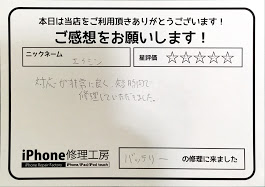 本日は当店をご利用頂きありがとうございます!
ご感想をお願いします!
ニックネーム
星評価 ☆☆☆☆☆
対応が非常に良く、短時間で
修理していただけました。
iPhone修理工房
iPhone Repair Factory iPhone/iPad/iPod touch
バッテリー の修理に来ました